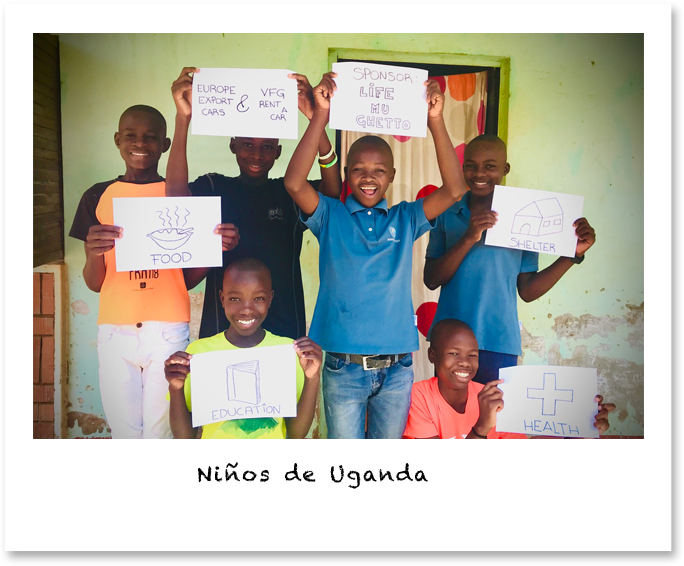 EUROPE
EXPORT
CARS
&
VFG
RENT A
CAR
SPONSOR:
LIFE
MU
GHETTO
FOOD
SHELTER
EDUCATION
HEALTH
Niños de Uganda